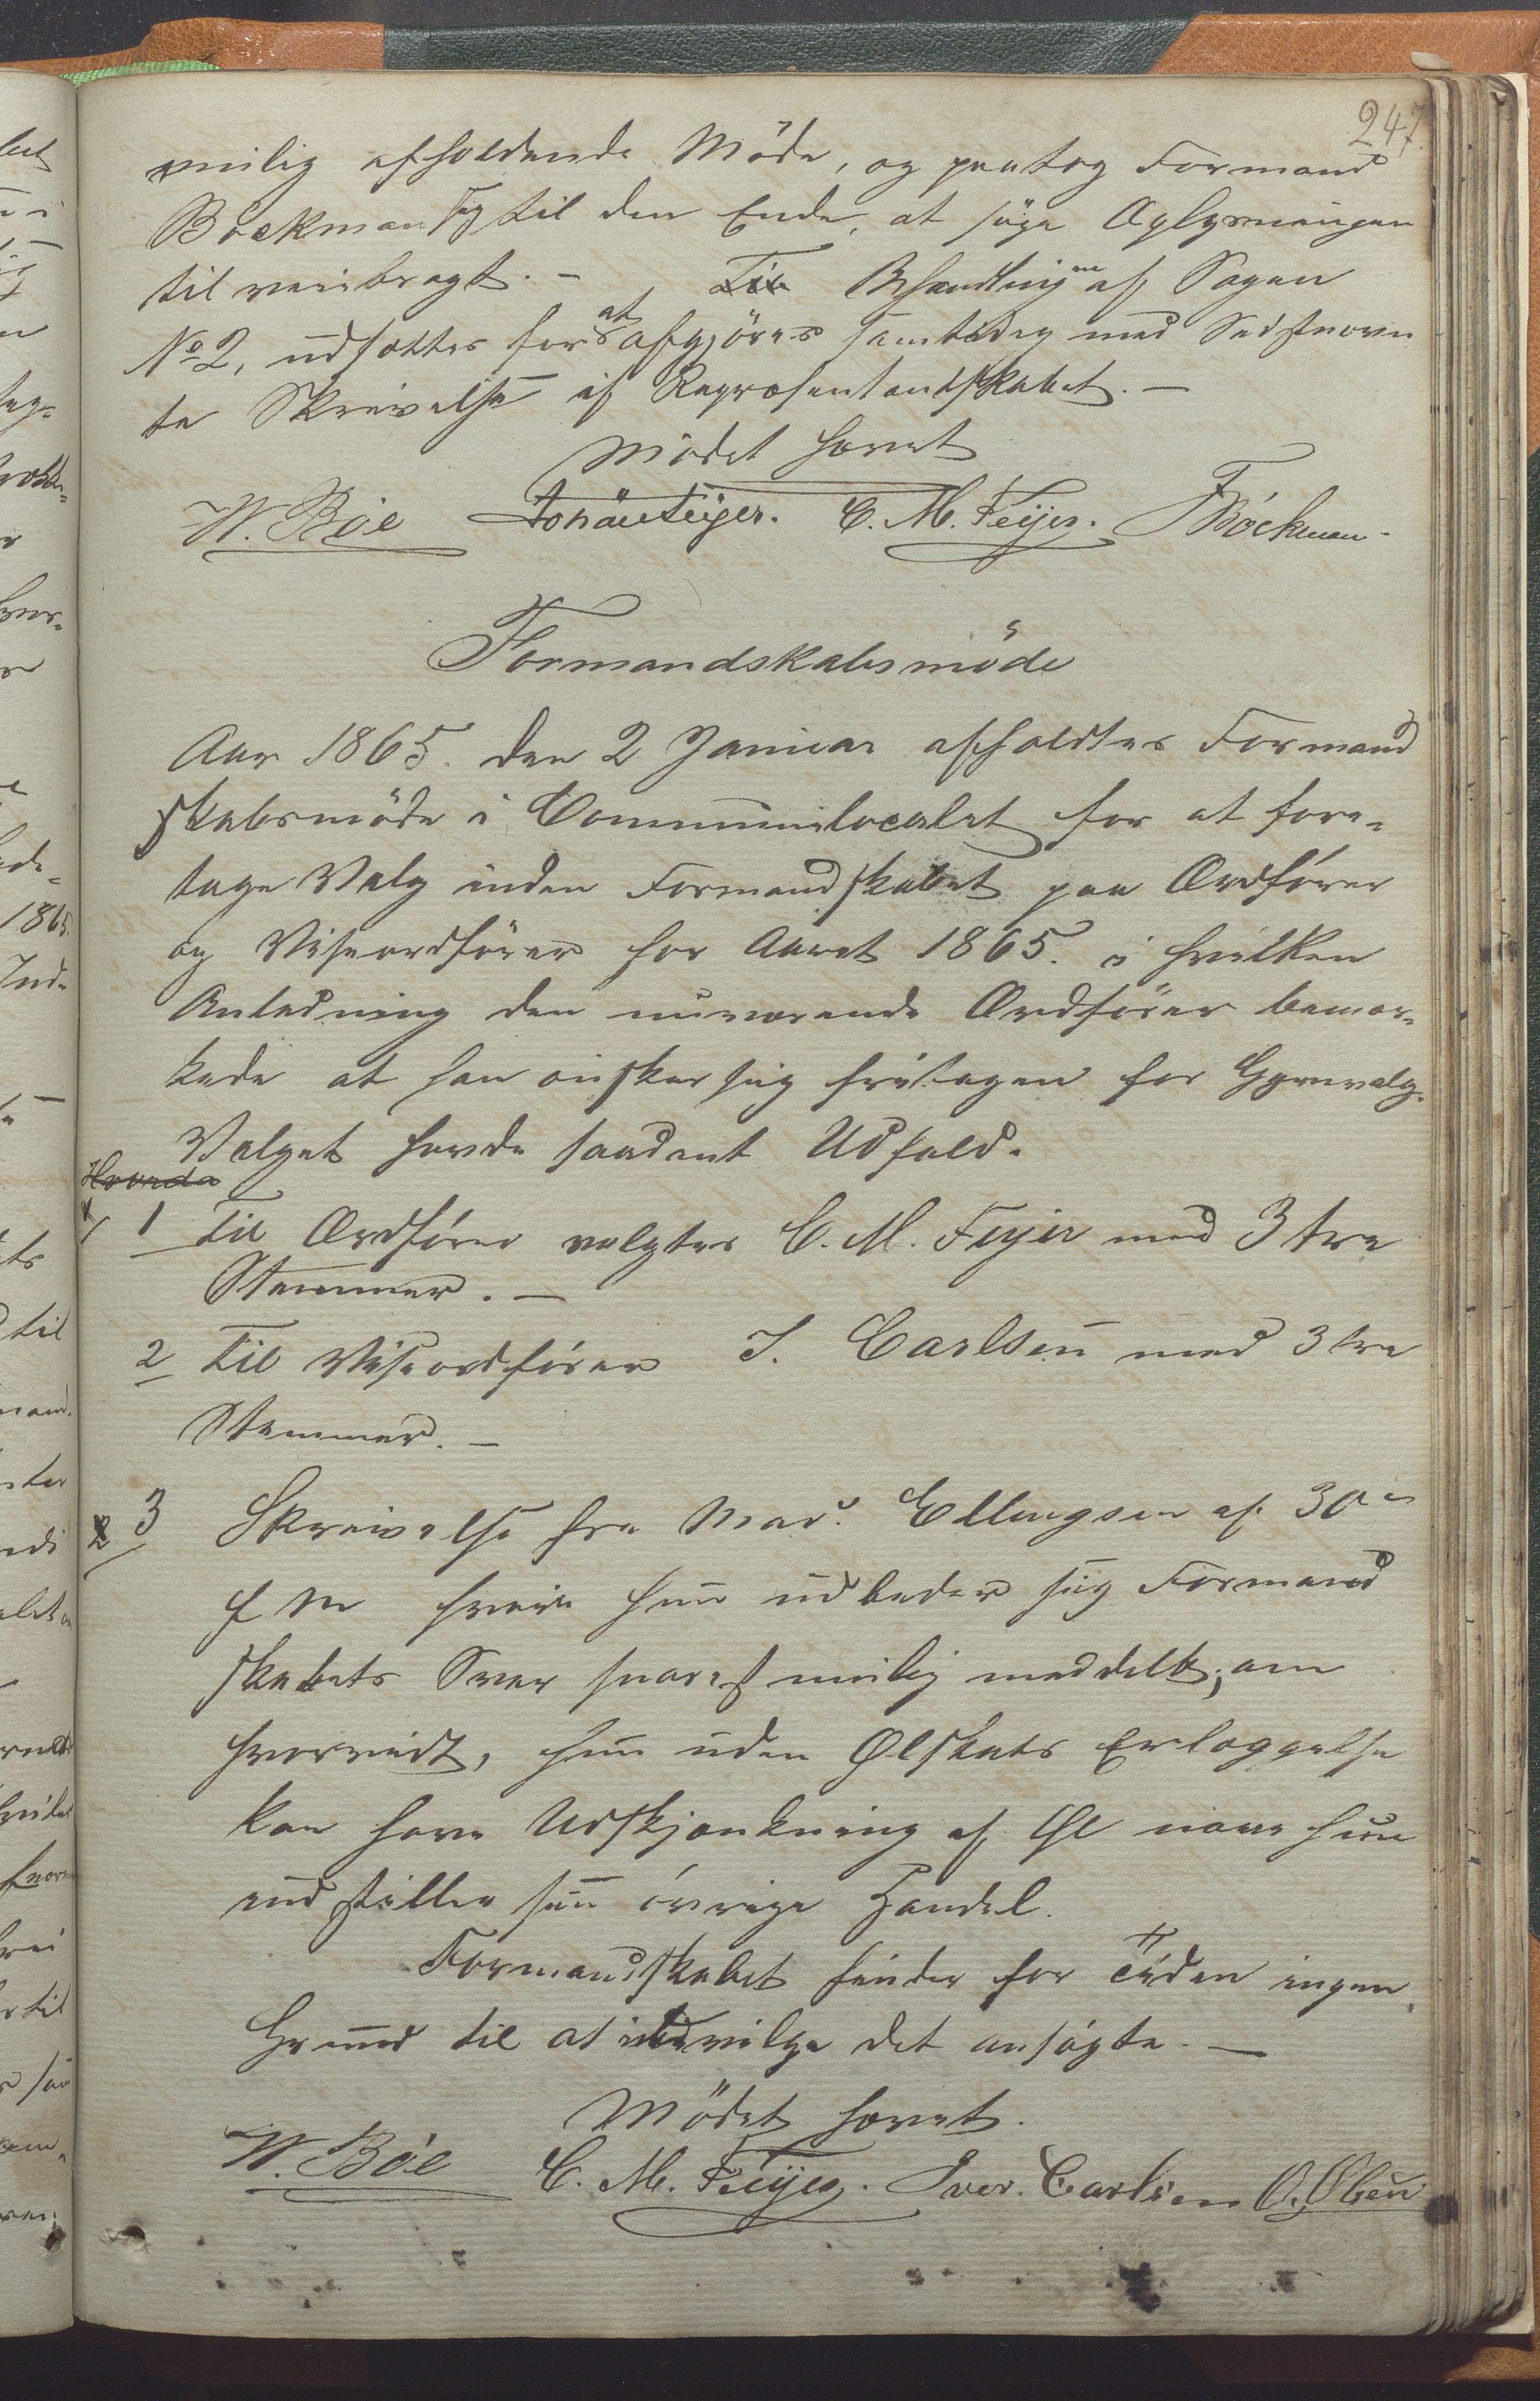 247.
muilig afholdende Möde, og paatog Formand
Böckman sig til den Ende, at söge Oplysningen
tilveiebragt. – Til Behandlingen af Sagen
No 2, udsættes for at afgjöres samtidig med Sidstnævn
te Skrivelse af Repræsentantskabet. –
Mödet hævet
W. Böe Jonäs Eeger. C. M. Feijer. F Böckman.
Formandskabsmöde
Aar 1865. den 2 Januar afholdtes Formand
skabsmöde i Communelocalet for at fore-
tage Valg inden Formandskabet paa Ordförer
og Viseordförer for Aaret 1865. i hvilken
Anledning den nuværende Ordförer bemær-
kede at han önsker sig fritagen for Gjenvalg.
Valget havde saadant Udfald.
1 Til Ordförer valgtes C. M. Feyer med 3 tre
Stemmer. –
2 Til Viseordförer I. Carlsen med 3 tre
Stemmer. –
3 Skrivelse fra Mad. Ellingsen af 30te
f M hvori hun udbeder sig Formand
skabets Svar snarest muilig meddelt; om
hvorvidt, hun uden Ølskats Erlæggelse
kan have Udskjænkning af Øl naar hun
indstiller sin övrige Handel.
Formandskabet finder for Tiden ingen
Grund til at indvilge det ansögte. –
Mödet hævet.
W. Böe C. M. Feijer. Iver. Carlsen O. Olsen